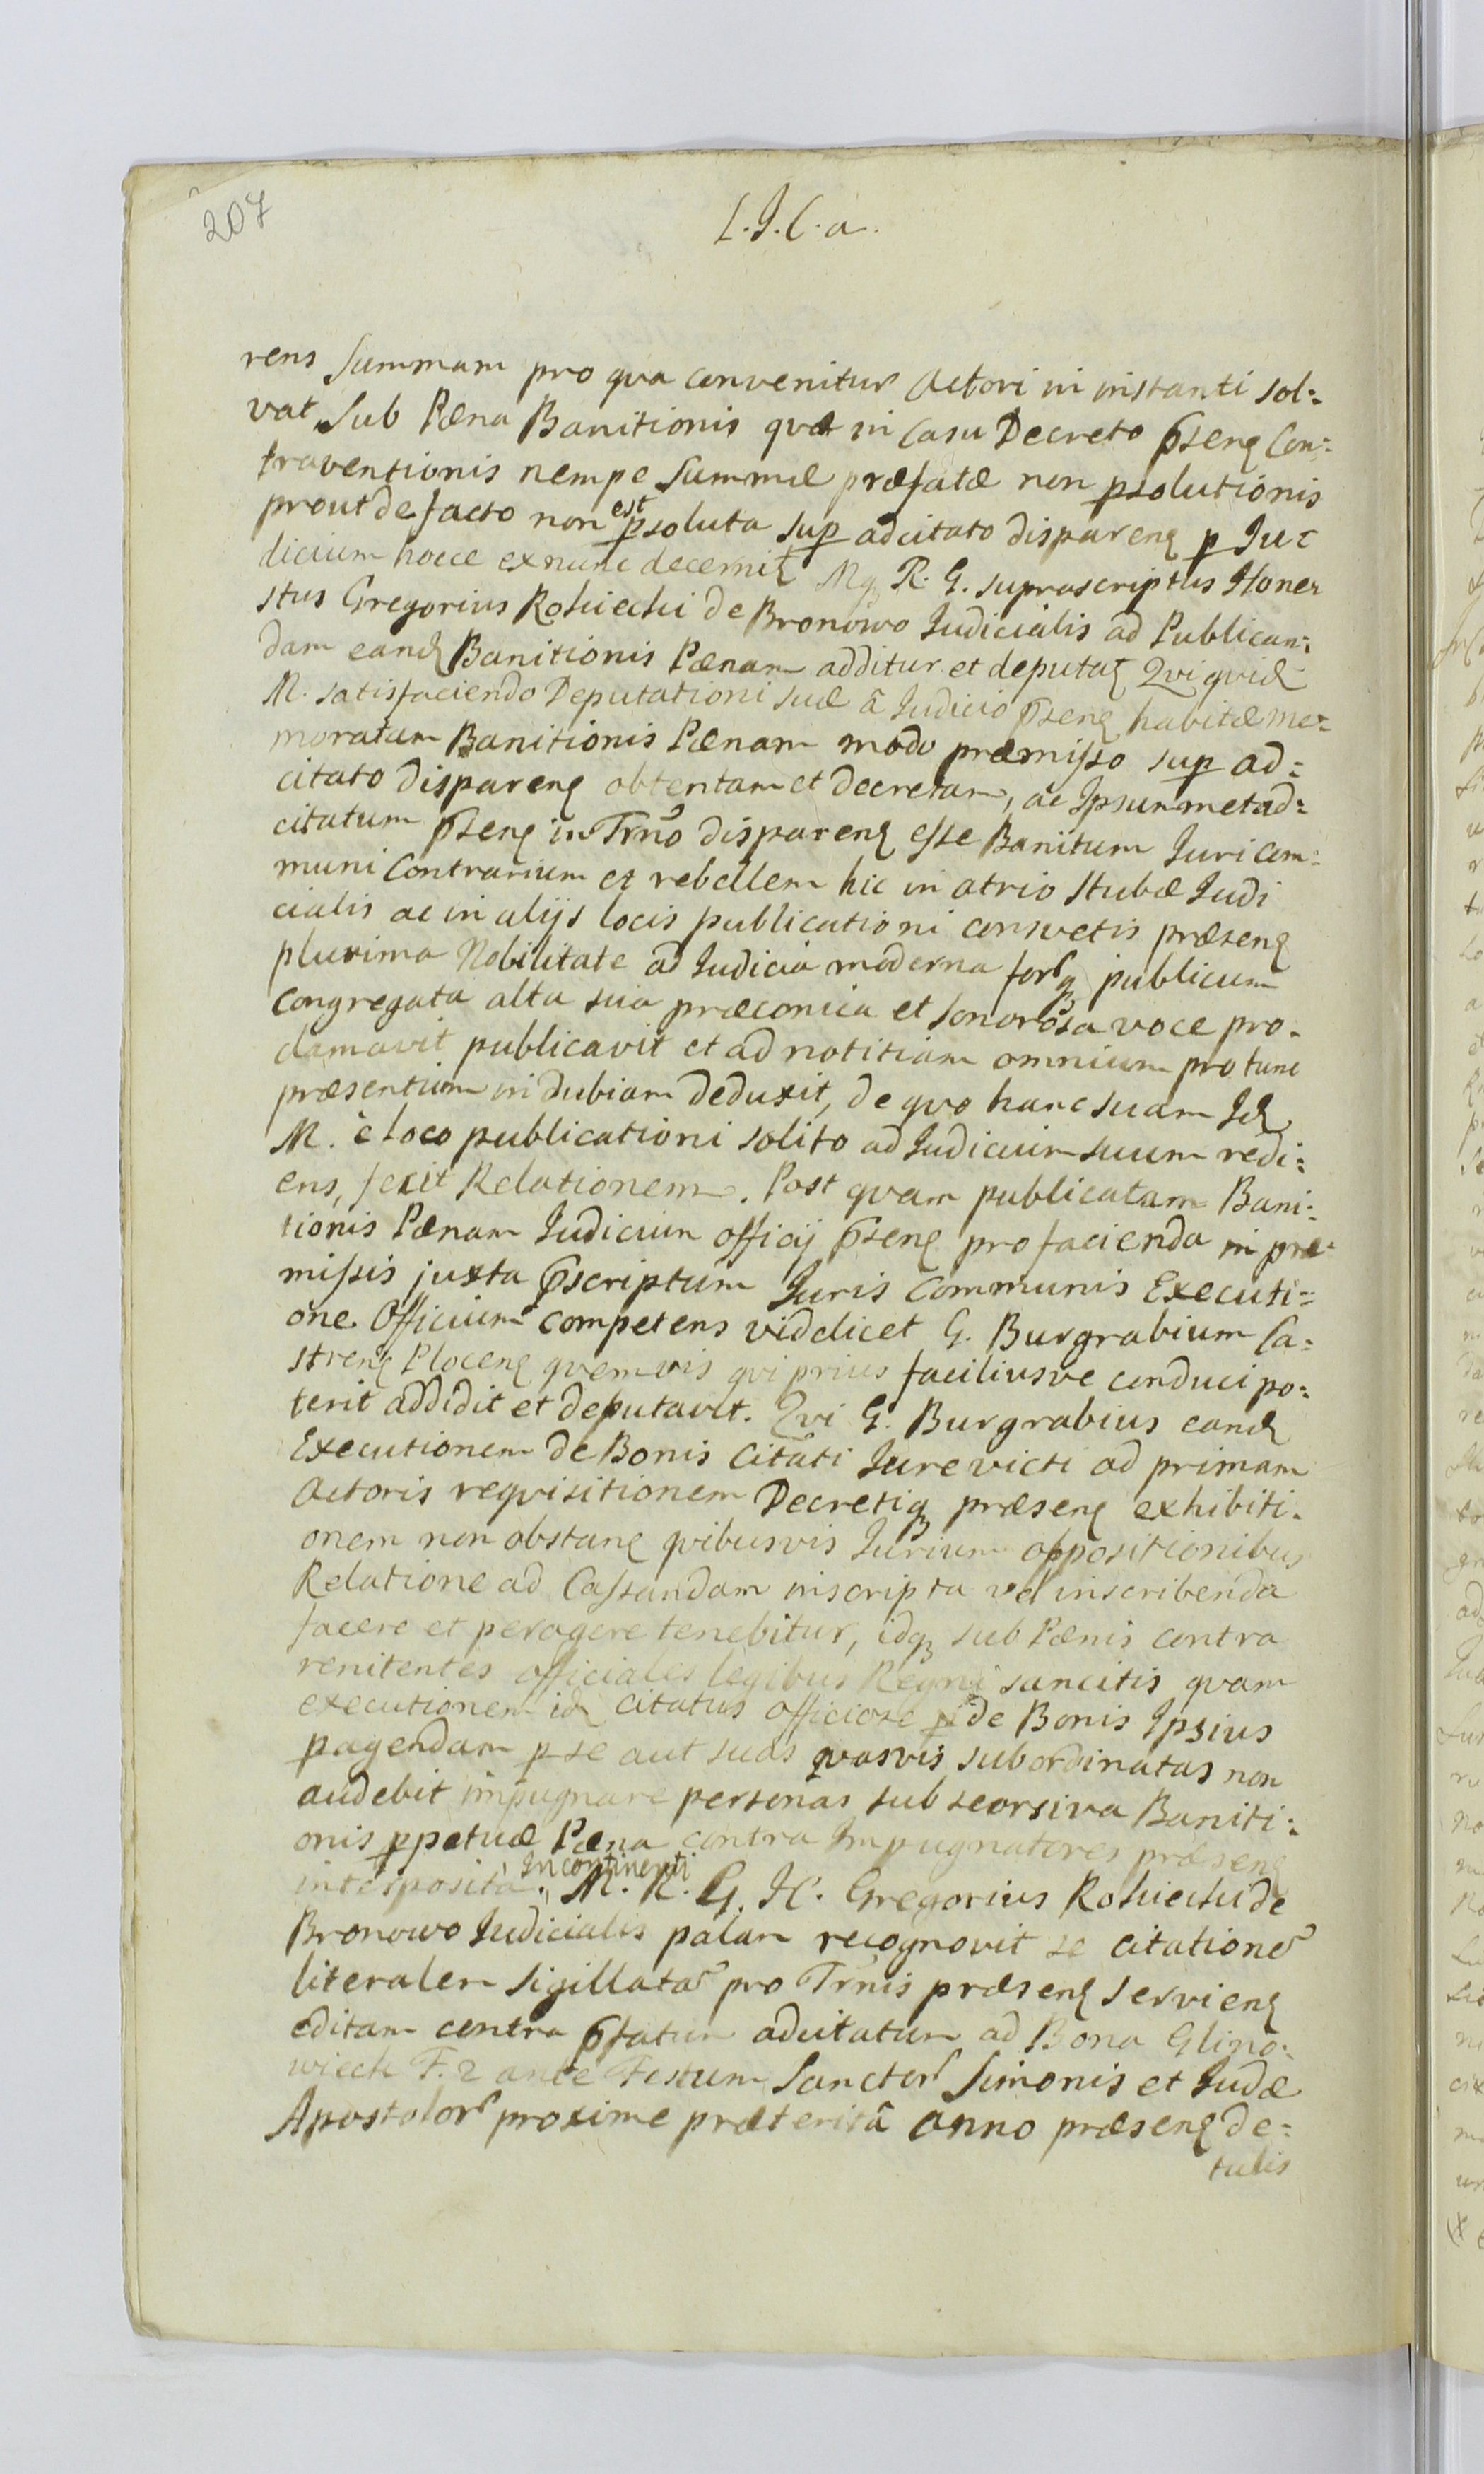 207
L.J.C.a.
rens Summam pro qva convenitur Actori in instanti sol=
vat Sub Pæna Banitionis qvæ in Casu Decreto p̄senꝭ Con=
traventionis nempe Summæ præfatæ non psolutionis
prout de facto non est psoluta sup adcitato disparenꝭ p Ju=
dicium hocce ex nunc decernitꝭ Mqꝫ R. G. suprascriptus Hone=
stus Gregorius Rokicchi de Bronowo Judicialis ad Publican=
dam eandꝭ Banitionis Pænam additur et deputatꝭ Qvi qvidꝭ
M. satisfaciendo Deputationi suæ â Judicio p̄senꝭ habitæ me=
moratam Banitionis Pænam modo præmisso sup ad=
citato disparenꝭ obtentam et decretam, ac Ipsummet ad=
citatum p̄senꝭ in Trno disparenꝭ esse Banitum Juri com=
muni Contrarium et rebellem hic in atrio Stubæ Judi
cialis ac in alijs locis publicationi consvetis præsenꝭ
plurima Nobilitate ad Judicia moderna forqꝫ publicum
Congregata alta sua præconica et sonorosa voce pro=
clamavit publicavit et ad notitiam omnium pro tunc
præsentium indubiam deduxit, de qvo hanc suam Idꝭ
M. è loco publicationi solito ad Judicium suum redi=
ens, fecit Relationem. Post qvam publicatam Bani=
tionis Pænam Judicium officij p̄senꝭ pro facienda in præ=
missis juxta p̄scriptum Juris Communis Executi=
one Officium competens videlicet G. Burgrabium Ca=
strenꝭ Plocenꝭ qvemvis qvi prius faciliusve conduci po=
terit addidit et deputavit. Qvi G. Burgrabius eandꝭ
Executionem de Bonis Citati Jure victi ad primam
Actoris reqvisitionem Decretiqꝫ præsenꝭ exhibiti=
onem non obstanꝭ qvibusvis Jurium oppositionibus
Relatione ad Cassandam inscripta vel inscribenda
facere et peragere tenebitur, idqꝫ sub Pænis contra
renitentes officiales legibus Regni sancitis qvam
executionem idꝭ Citatus officiose p de Bonis Ipsius
pagendam p se aut suas qvasvis subordinatas non
audebit impugnare personas sub seorsiva Baniti=
onis ppetuæ Pæna contra Impugnatores præsenꝭ
interposita. Incontinenti M. R. G. H. Gregorius Rokicchi de
Bronowo Judicialis palam recognovit se citatione
literalem Sigillata pro Trnis præsenꝭ servienꝭ
editam contra p̄fatum adcitatum ad Bona Glino=
wieck F. 2 ante Festum Sanctor Simonis et Judæ
Apostolor proxime præteritâ anno præsenꝭ de=
tulis